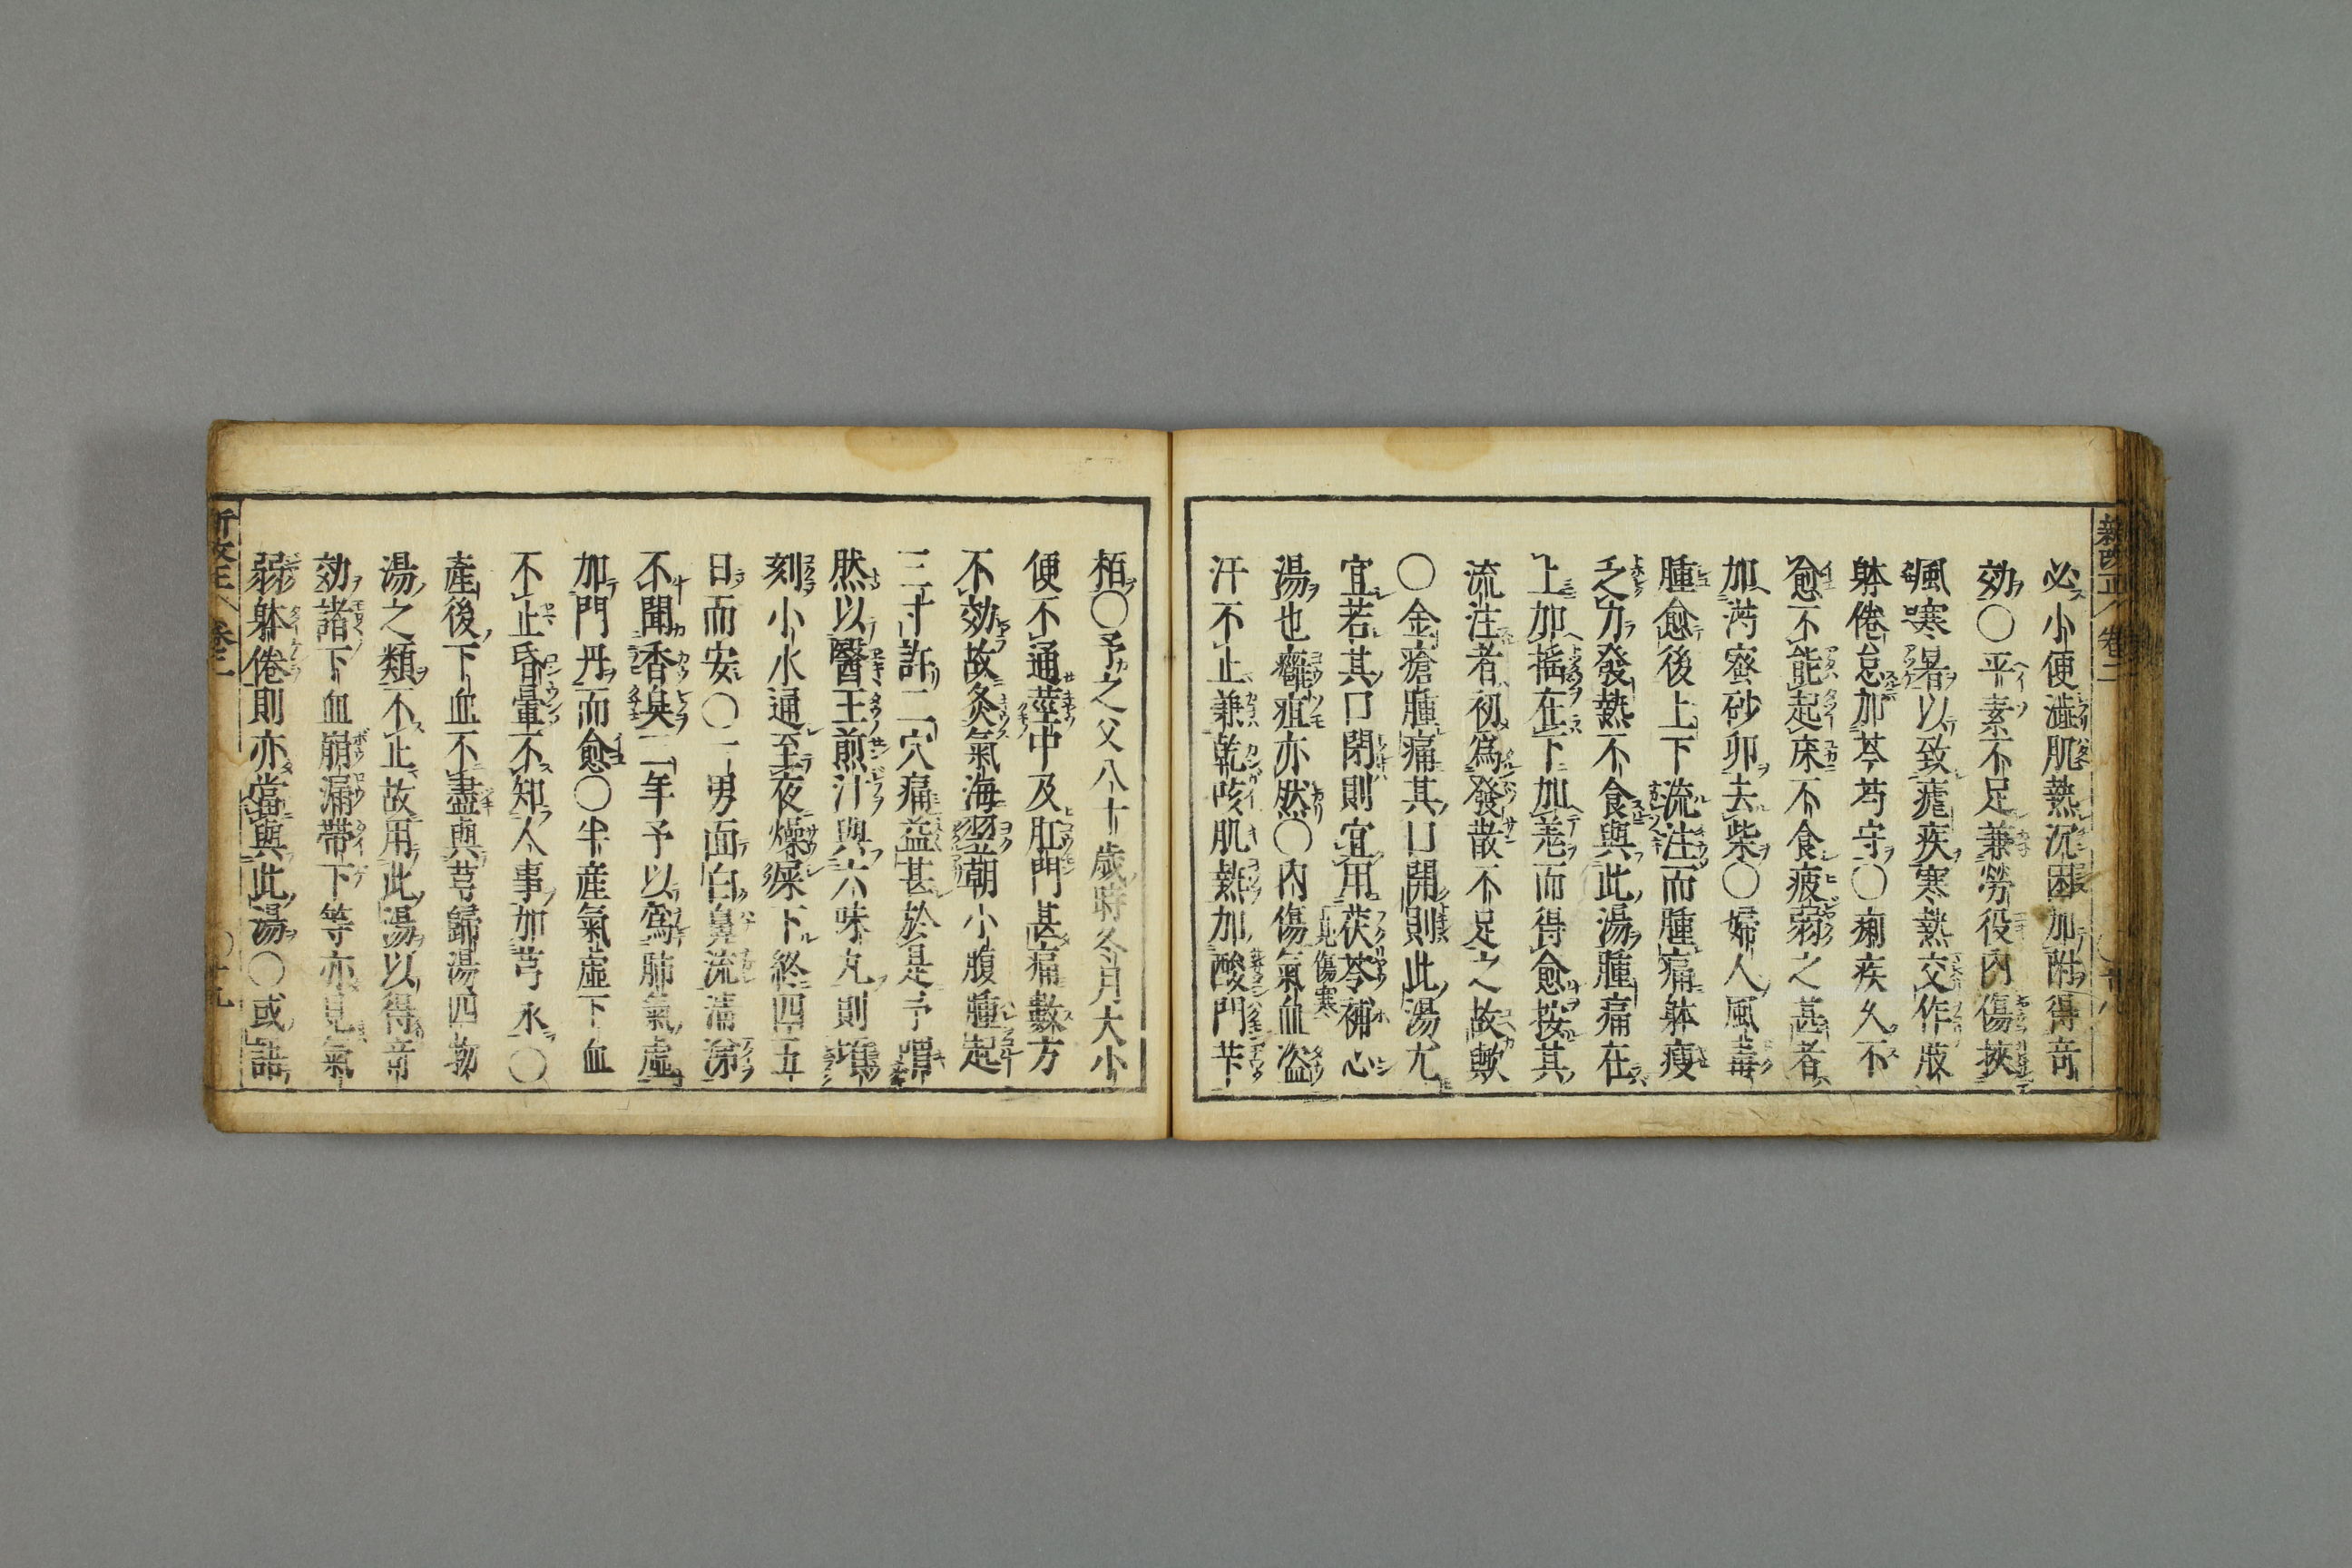 必小便澁肌熱沉困加附得竒
効〇平素不足兼勞役內傷挾
風寒暑以致瘧疾寒熱交作肢
躰倦怠加芩芍守〇痢疾久不
愈不能起床不食疲弱之甚者
加蒡蜜砂卯去柴〇婦人風毒
腫愈後上下流注而腫痛躰瘦
之力發熱不食與此湯腫痛在
上加搖在下加羗而得愈按其
流注者初爲發散不足之故歟
〇金瘡腫痛其口開則此湯尤
宜若其口閉則宜用茯苓補心
見傷寒
湯也癰疽亦然〇內傷氣血盜
汗不止兼乾咳肌熱加酸門芐
栢〇予之父八十歲時冬月大小
便不通莖中及肛門甚痛數方
不効故灸氣海翌朝小腹腫起
三寸許二穴痛益甚於是予喟
然以醫王煎汁與六味丸則
刻小水通至夜燥屎下終四五
日而安〇一男面白鼻流淸涕
不聞香臭二年予以爲肺氣虛
加門丹而愈〇半産氣虛下血
不止昏暈不知人事加芎永〇
產後下血不盡與芎歸湯四物
湯之類不止故用此湯以得竒
効諸下血崩漏帶下等亦見氣
弱躰倦則亦當與此湯〇或諸
卷二